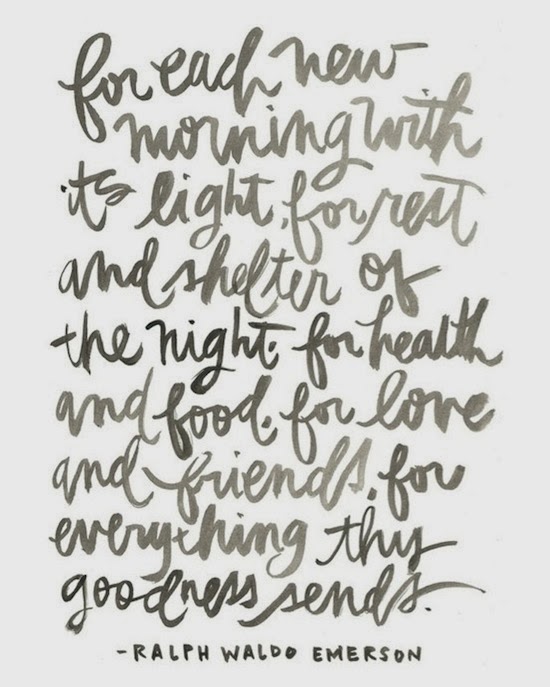 for each new
morning with
its light, for rest
and shelter of
the night. for health
and food. for love
and friends, for
everything thy
goodness sends.
-RALPH WALDO EMERSON